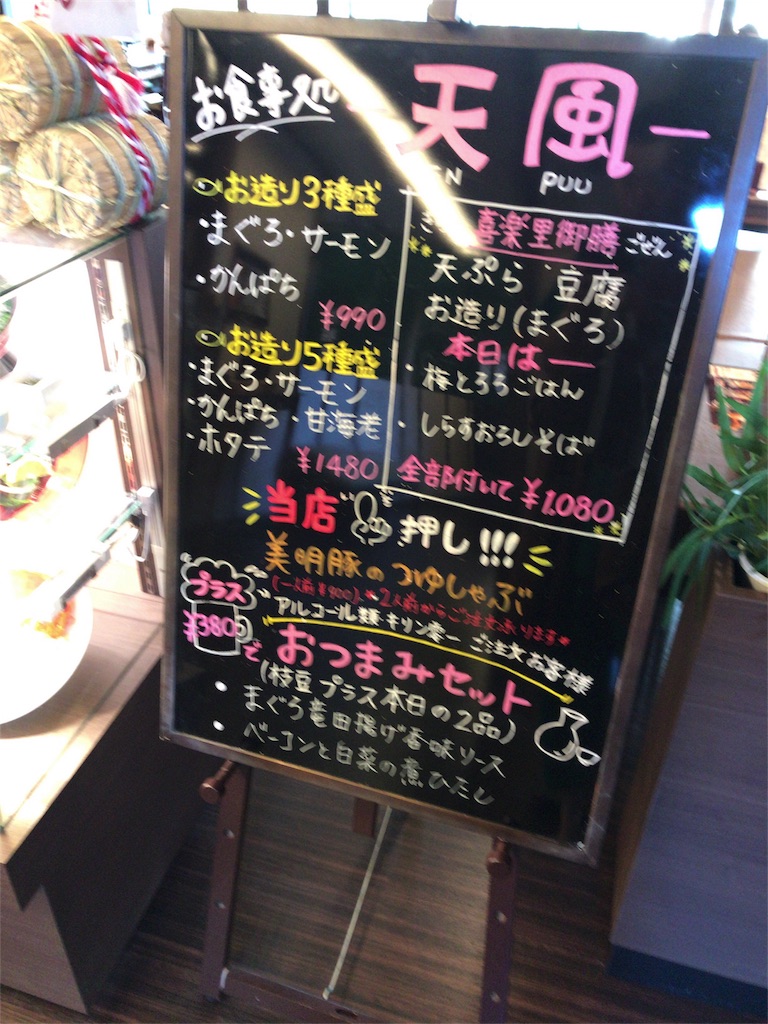 お食事処 天風
PUU
お造り3種盛
・まぐろ・サーモン
・かんぱち
¥990
お造り5種盛
・まぐろ・サーモン
・かんぱち・甘海老
・ホタテ
¥1480
喜楽里御膳 ごぜん
天ぷら 豆腐
お造り(まぐろ)
本日はー
・梅とろろごはん
・しらすおろしそば
全部付いて ¥1,080
当店 押し!!!
美明豚のつゆしゃぶ
(一人前¥900) *2人前からご注文承ります*
アルコール類 ご注文お客様
プラス
¥380で おつまみセット
(枝豆プラス本日の2品)
・まぐろ竜田揚げ香味ソース
・ベーコンと白菜の煮びたし